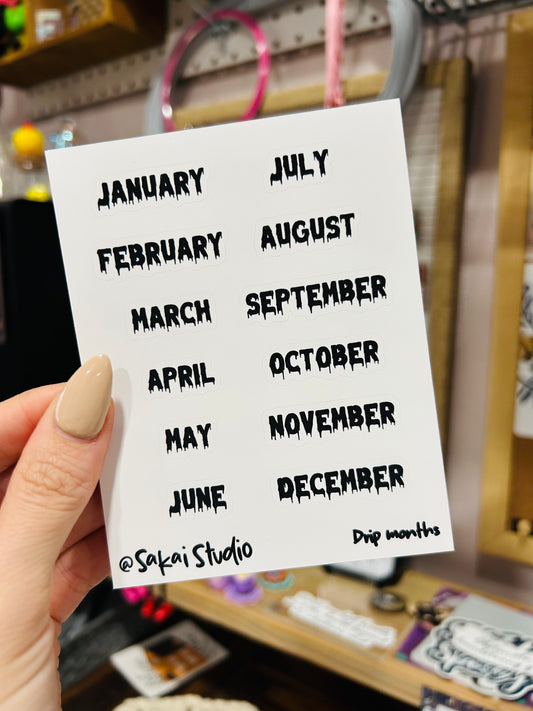 JANUARY
FEBRUARY
MARCH
APRIL
MAY
JUNE
JULY
AUGUST
SEPTEMBER
OCTOBER
NOVEMBER
DECEMBER
@Sakai Studio
Drip months